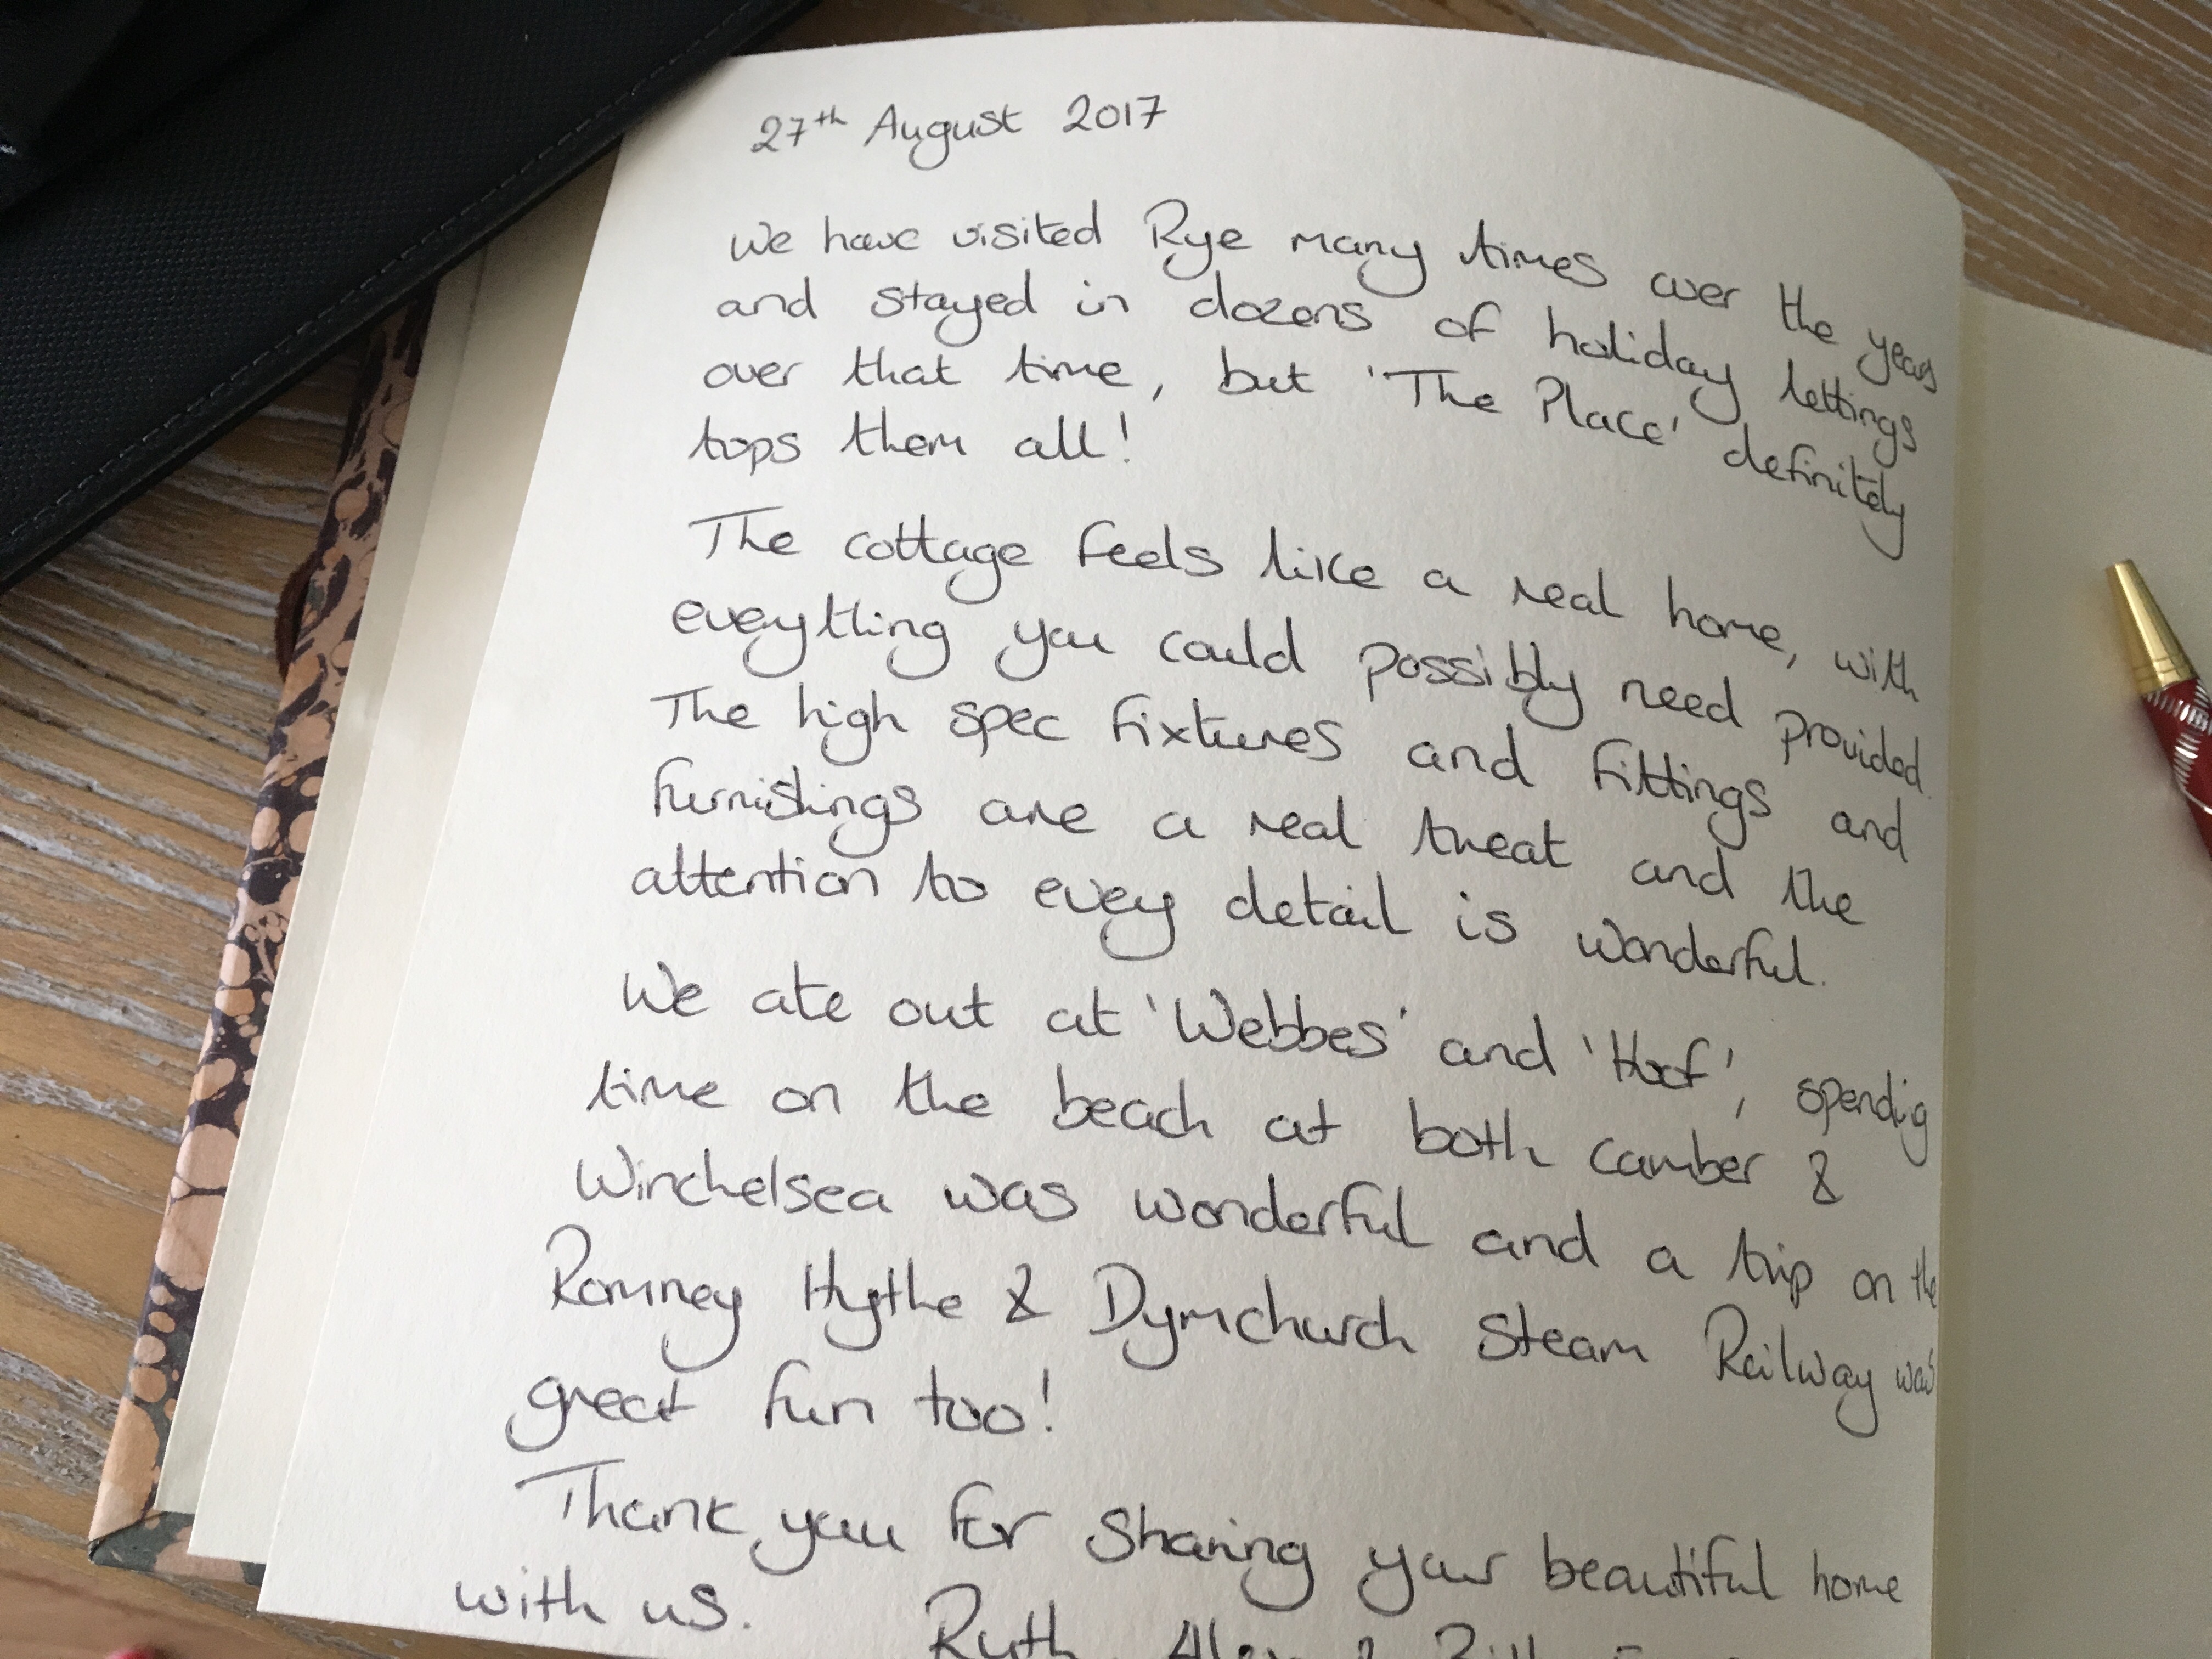 27th August 2017
We have visited Rye many times over the years
and stayed in dozens of holiday lettings
over that time, but 'The Place' definitely
tops them all!
The cottage feels like a real home, with
eveything you could possibly need provided.
The high spec fixtures and fittings and
furnishings are a real treat and the
attention to evey detail is wonderful.
We ate out at 'Webbes' and 'Hoof', spending
time on the beach at both Camber &
Winchelsea was wonderful and a trip on the
Romney Hythe & Dymchurch Steam Railway was
great fun too!
Thank you for sharing your beautiful home
with us.
Ruth, &